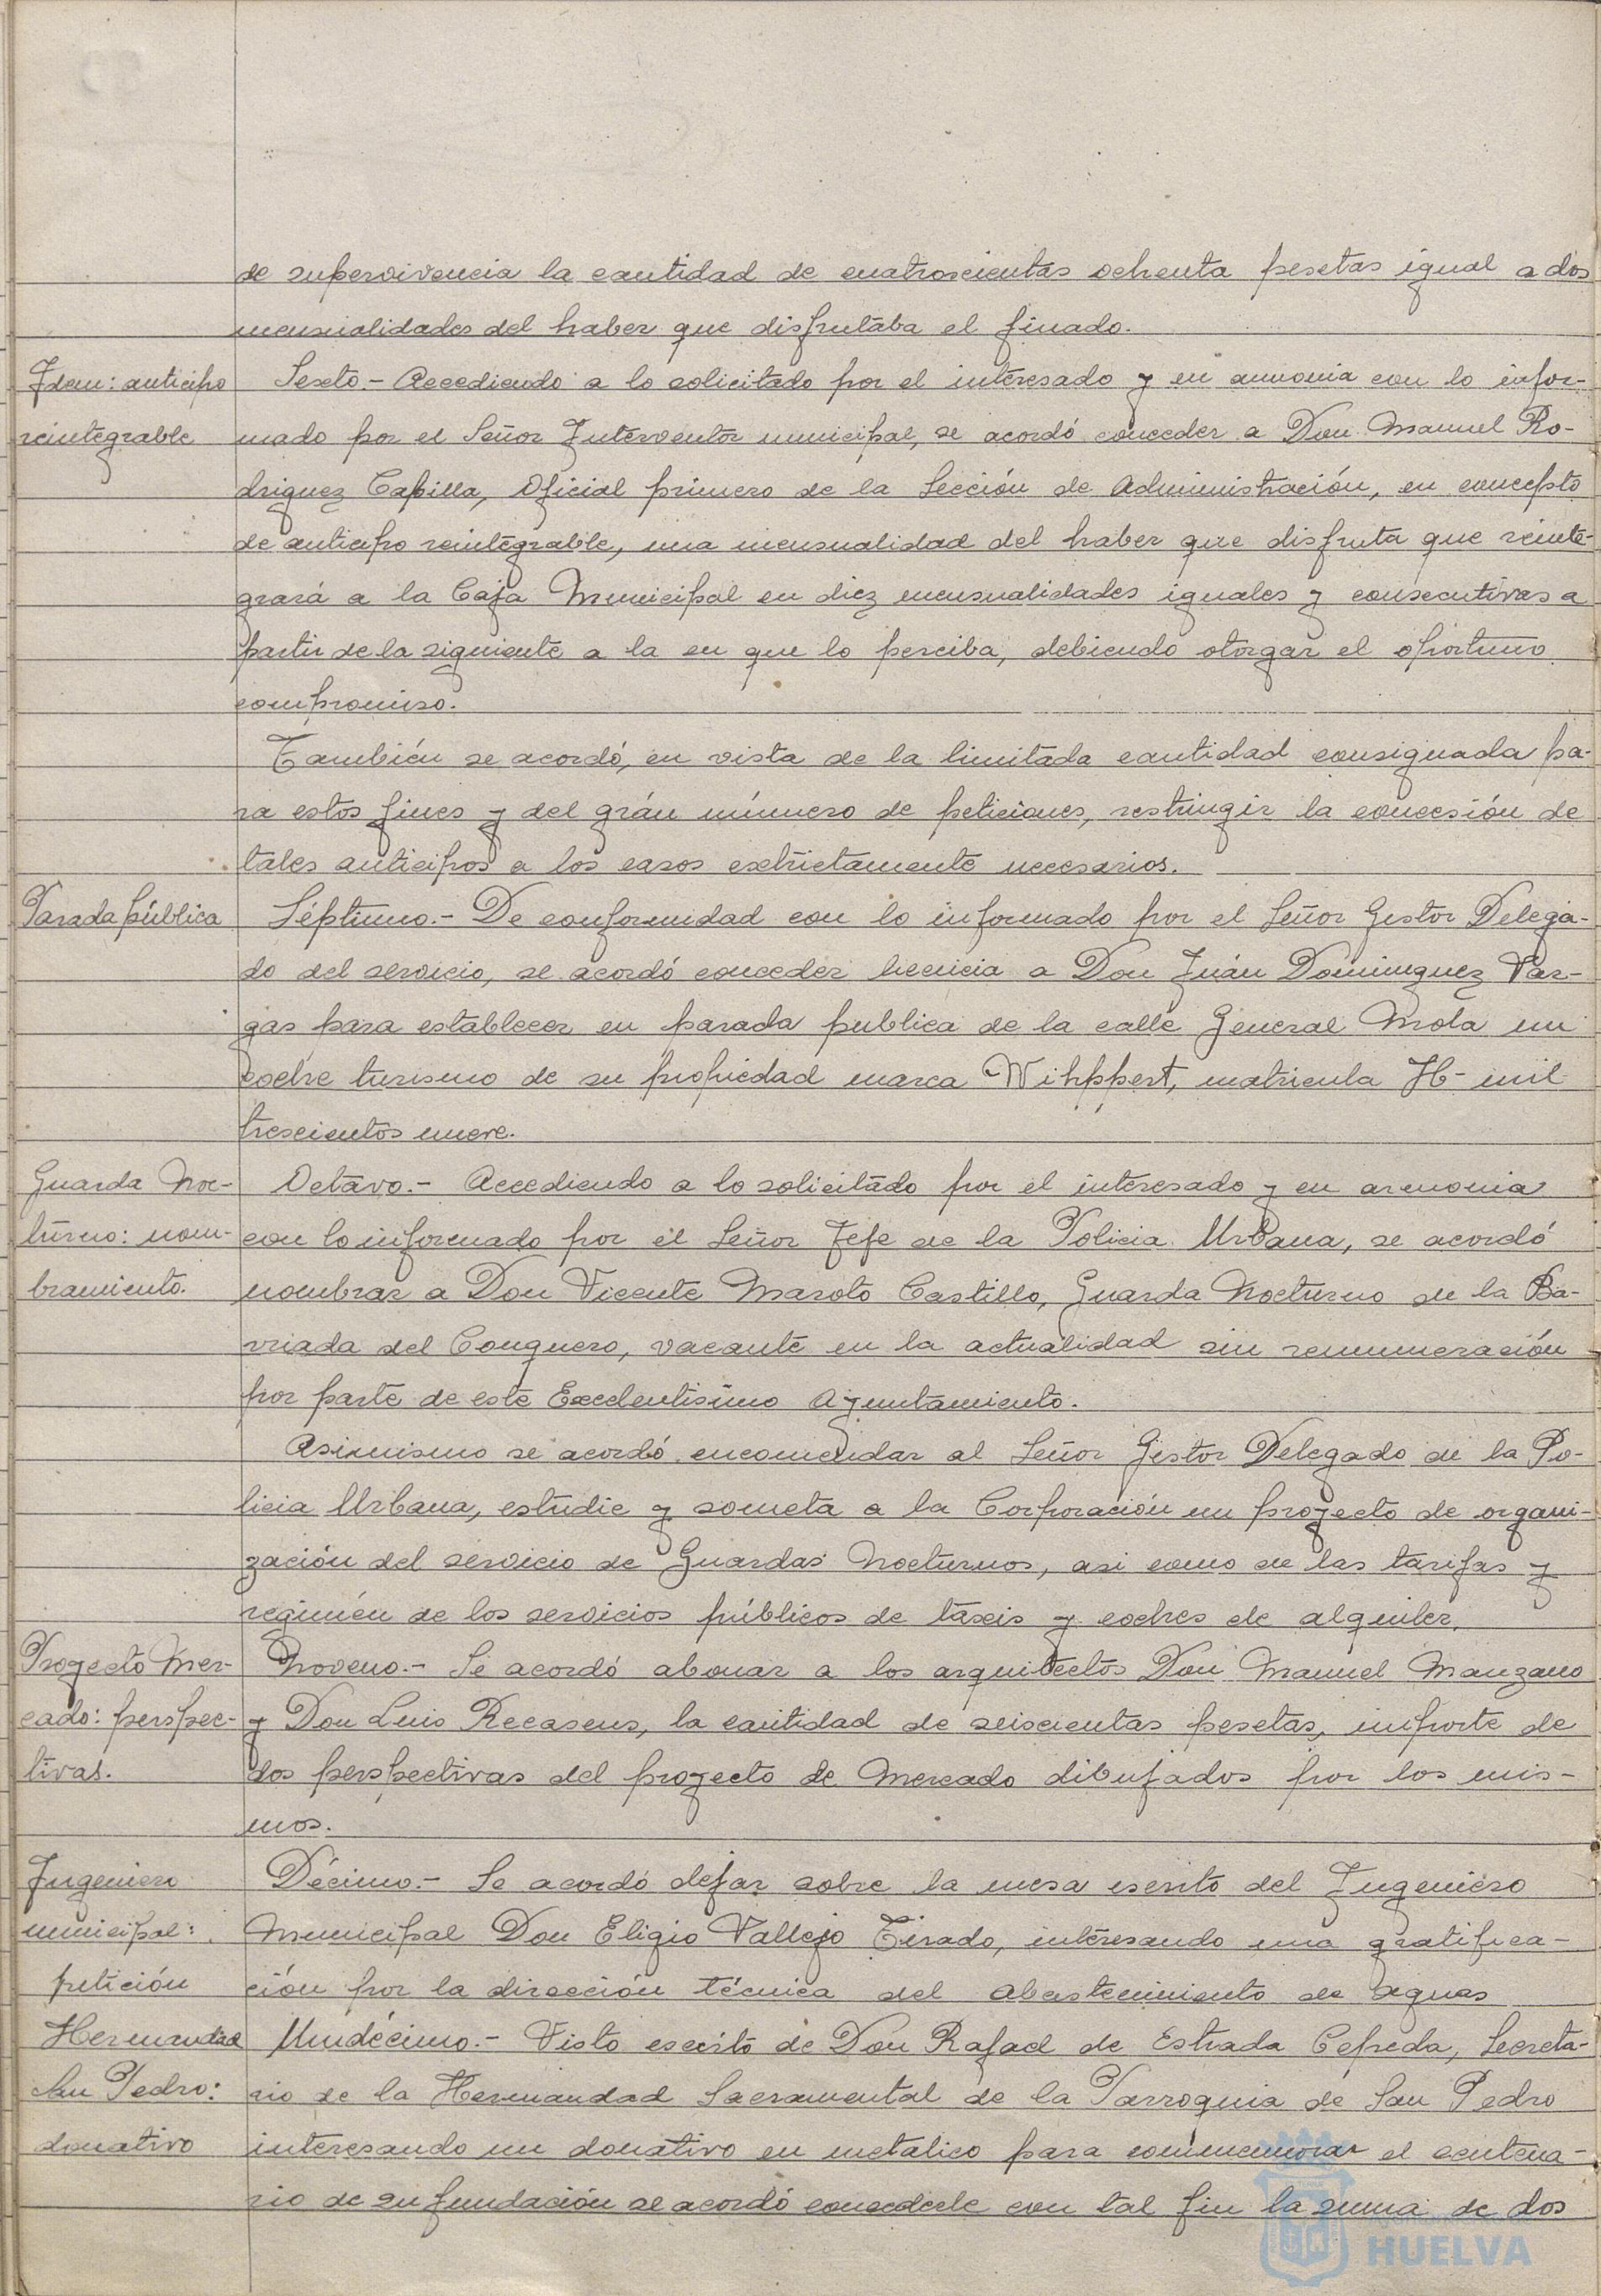 de supervivencia la cantidad de cuatroscientas ochenta pesetas igual a dos
mensualidades del haber que disfrutaba el finado.
Idem: anticipo
reintegrable
Sexto.- Accediendo a lo solicitado por el interesado y en armonia con lo infor-
mado por el Señor Interventor municipal, se acordó conceder a Don Manuel Ro-
driguez Capilla, Oficial primero de la Sección de Administración, en concepto
de anticipo reintegrable, una mensualidad del haber que disfruta que reinte-
grará a la Caja Municipal en diez mensualidades iguales y consecutivas a
partir de la siguiente a la en que lo perciba, debiendo otorgar el oportuno
compromiso.
También se acordó, en vista de la limitada cantidad consignada pa-
ra estos fines y del grán número de peticiones, restringir la concesión de
tales anticipos a los casos extrictamente necesarios.
Parada pública
Séptimo.- De conformidad con lo informado por el Señor Gestor Delega-
do del servicio, se acordó conceder licencia a Don Juán Dominguez Var-
gas para establecer en parada publica de la calle General Mola un
coche turismo de su propiedad marca Wihppert, matricula H- mil
trescientos nueve.
Guarda Noc-
turno: nom-
bramiento.
Octavo.- Accediendo a lo solicitado por el interesado y en armonia
con lo informado por el Señor Jefe de la Policia Urbana, se acordó
nombrar a Don Vicente Maroto Castillo, Guarda Nocturno de la Ba-
rriada del Conquero, vacante en la actualidad sin remuneración
por parte de este Excelentisimo Ayuntamiento.
Asimismo se acordó encomendar al Señor Gestor Delegado de la Po-
licia Urbana, estudie y someta a la Corporación un proyecto de organi-
zación del servicio de Guardas Nocturnos, asi como de las tarifas y
regimén de los servicios públicos de taxis y coches de alquiler.
Proyecto Mer-
cado: perspec-
tivas.
Noveno.- Se acordó abonar a los arquitectos Don Manuel Manzano
y Don Luis Recasens, la cantidad de seiscientas pesetas, importe de
dos perspectivas del proyecto de Mercado dibujados por los mis-
mos.
Ingeniero
municipal:
petición
Décimo.- Se acordó dejar sobre la mesa escrito del Ingeniero
Municipal Don Eligio Vallejo Tirado, interesando una gratifica-
ción por la dirección técnica del abastecimiento de aguas
Hermandad
San Pedro:
donativo
Undécimo.- Visto escrito de Don Rafael de Estrada Cepeda, Secreta-
rio de la Hermandad Sacramental de la Parroquia de San Pedro
interesando un donativo en metalico para commemorar el centena-
rio de su fundación se acordó concederle con tal fin la suma de dos
HUELVA